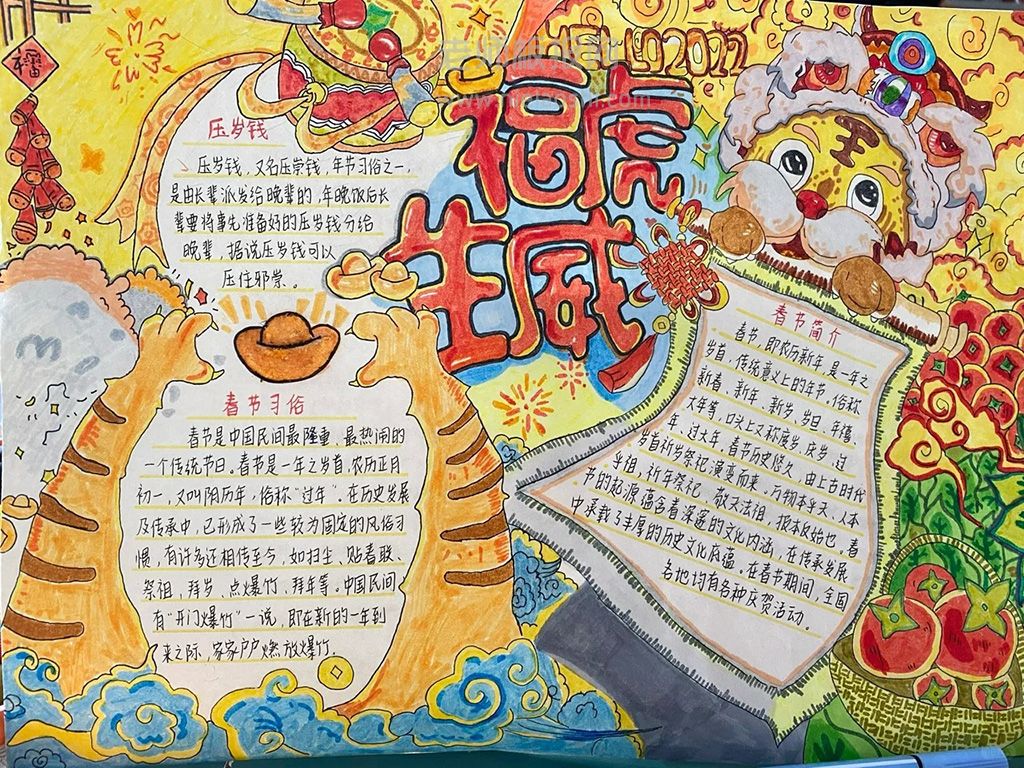 福
2022
福虎
生威
压岁钱
压岁钱，又名压祟钱，年节习俗之一，
是由长辈派发给晚辈的，年晚饭后长
辈要将事先准备好的压岁钱分给
晚辈，据说压岁钱可以
压住邪祟。
春节习俗
春节是中国民间最隆重、最热闹的
一个传统节日。春节是一年之岁首，农历正月
初一，又叫阴历年，俗称“过年”。在历史发展
及传承中，已形成了一些较为固定的风俗习
惯，有许多还相传至今，如扫尘、贴春联、
祭祖，拜岁、点爆竹、拜年等。中国民间
有“开门爆竹”一说，即在新的一年到
来之际，家家户户燃放爆竹.
春节简介
春节，即农历新年，是一年之
岁首，传统意义上的年节.俗称
新春、新年、新岁、岁旦、年禧、
大年等，口头上又称度岁、庆岁、过
年、过大年。春节历史悠久，由上古时代
岁首祈岁祭祀演变而来。万物本乎天、人本
乎祖，祈年祭祀、敬天法祖，报本反始也，春
节的起源蕴含着深邃的文化内涵，在传承发展
中承载了丰厚的历史文化底蕴。在春节期间，全国
各地均有各种庆贺活动.